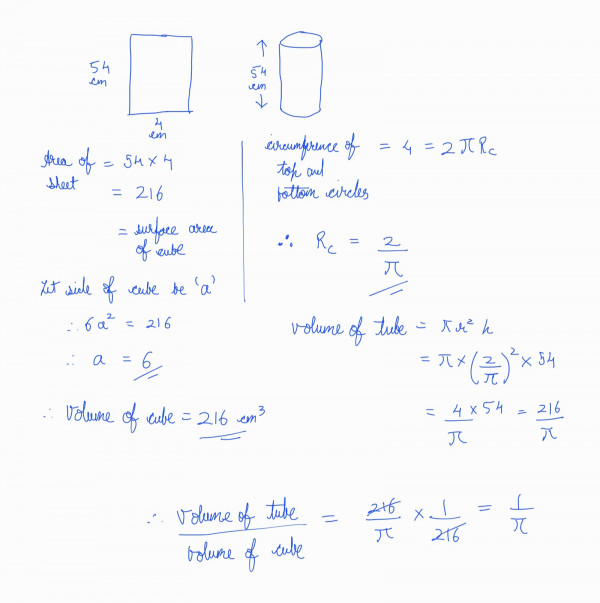 54 cm
4 cm
54 cm
Area of sheet = 54 × 4
= 216
= surface area of cube
Let side of cube be 'a'
∴ 6a² = 216
∴ a = 6
∴ Volume of cube = 216 cm³
circumference of top and bottom circles = 4 = 2πR_c
∴ R_c = 2/π
volume of tube = πr²h
= π × (2/π)² × 54
= 4/π × 54 = 216/π
∴ volume of tube / volume of cube = 216/π × 1/216 = 1/π